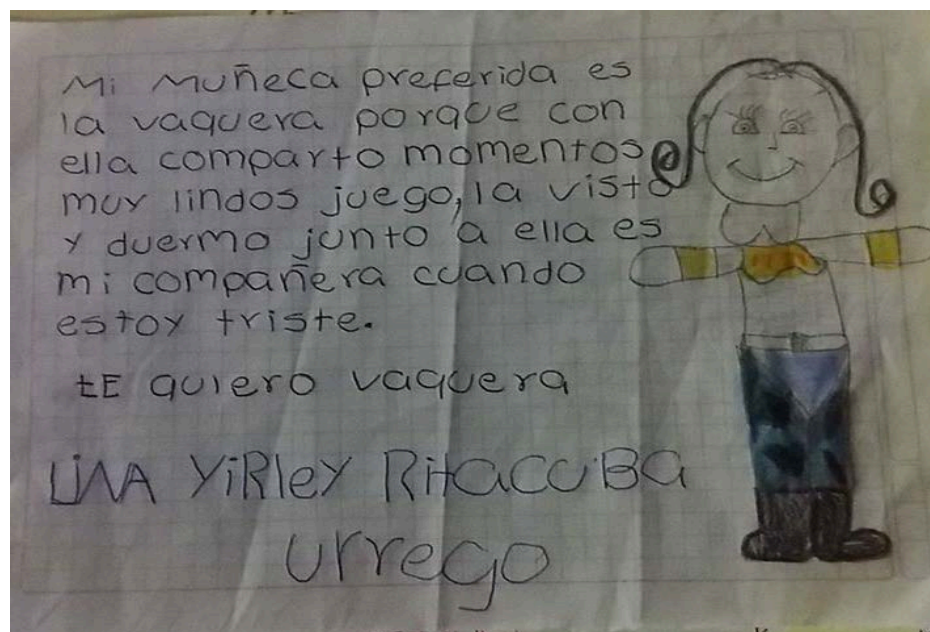 Mi muñeca preferida es
la vaquera porque con
ella comparto momentos
muy lindos juego, la visto
y duermo junto a ella es
mi compañera cuando
estoy triste.
tE quiero vaquera
LiNA YiRleY RitacuBa
urrego